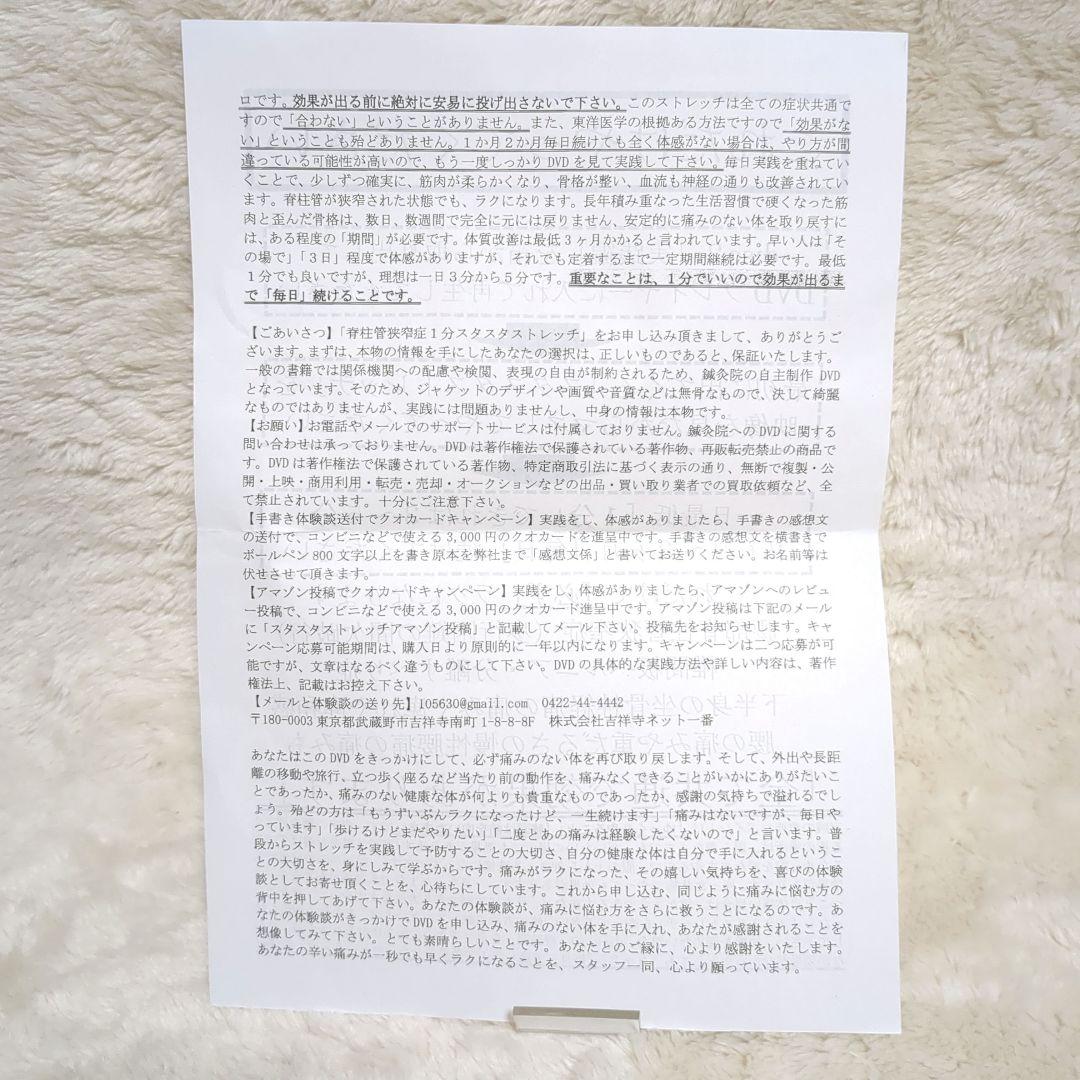 ロです。効果が出る前に絶対に安易に投げ出さないで下さい。このストレッチは全ての症状共通で
すので「合わない」ということがありません。また、東洋医学の根拠ある方法ですので「効果がな
い」ということも殆どありません。１か月２か月毎日続けても全く体感がない場合は、やり方が間
違っている可能性が高いので、もう一度しっかり DVD を見て実践して下さい。毎日実践を重ねてい
くことで、少しずつ確実に、筋肉が柔らかくなり、骨格が整い、血流も神経の通りも改善されてい
ます。脊柱管が狭窄された状態でも、ラクになります。長年積み重なった生活習慣で硬くなった筋
肉と歪んだ骨格は、数日、数週間で完全に元には戻りません、安定的に痛みのない体を取り戻すに
は、ある程度の「期間」が必要です。体質改善は最低３ヶ月かかると言われています。早い人は「そ
の場で」「３日」程度で体感がありますが、それでも定着するまで一定期間継続は必要です。最低
１分でも良いですが、理想は一日３分から５分です。重要なことは、１分でいいので効果が出るま
で「毎日」続けることです。
【ごあいさつ】「脊柱管狭窄症１分スタスタストレッチ」をお申し込み頂きまして、ありがとうご
ざいます。まずは、本物の情報を手にしたあなたの選択は、正しいものであると、保証いたします。
一般の書籍では関係機関への配慮や検閲、表現の自由が制約されるため、鍼灸院の自主制作 DVD
となっています。そのため、ジャケットのデザインや画質や音質などは無骨なもので、決して綺麗
なものではありませんが、実践には問題ありませんし、中身の情報は本物です。
【お願い】お電話やメールでのサポートサービスは付属しておりません。鍼灸院への DVD に関する
問い合わせは承っておりません。DVD は著作権法で保護されている著作物、再販転売禁止の商品で
す。DVD は著作権法で保護されている著作物、特定商取引法に基づく表示の通り、無断で複製・公
開・上映・商用利用・転売・売却・オークションなどの出品・買い取り業者での買取依頼など、全
て禁止されています。十分にご注意下さい。
【手書き体験談送付でクオカードキャンペーン】実践をし、体感がありましたら、手書きの感想文
の送付で、コンビニなどで使える 3,000 円のクオカードを進呈中です。手書きの感想文を横書きで
ボールペン 800 文字以上を書き原本を弊社まで「感想文係」と書いてお送りください。お名前等は
伏せさせて頂きます。
【アマゾン投稿でクオカードキャンペーン】実践をし、体感がありましたら、アマゾンへのレビュ
ー投稿で、コンビニなどで使える 3,000 円のクオカード進呈中です。アマゾン投稿は下記のメール
に「スタスタストレッチアマゾン投稿」と記載してメール下さい。投稿先をお知らせします。キャ
ンペーン応募可能期間は、購入日より原則的に一年以内になります。キャンペーンは二つ応募が可
能ですが、文章はなるべく違うものにして下さい。DVD の具体的な実践方法や詳しい内容は、著作
権法上、記載はお控え下さい。
【メールと体験談の送り先】105630@gmail.com 0422-44-4442
〒180-0003 東京都武蔵野市吉祥寺南町 1-8-8-8F 株式会社吉祥寺ネット一番
あなたはこの DVD をきっかけにして、必ず痛みのない体を再び取り戻します。そして、外出や長距
離の移動や旅行、立つ歩く座るなど当たり前の動作を、痛みなくできることがいかにありがたいこ
とであったか、痛みのない健康な体が何よりも貴重なものであったか、感謝の気持ちで溢れるでし
ょう。殆どの方は「もうずいぶんラクになったけど、一生続けます」「痛みはないですが、毎日や
っています」「歩けるけどまだやりたい」「二度とあの痛みは経験したくないので」と言います。普
段からストレッチを実践して予防することの大切さ、自分の健康な体は自分で手に入れるというこ
との大切さを、身にしみて学ぶからです。痛みがラクになった、その嬉しい気持ちを、喜びの体験
談としてお寄せ頂くことを、心待ちにしています。これから申し込む、同じように痛みに悩む方の
背中を押してあげて下さい。あなたの体験談が、痛みに悩む方をさらに救うことになるのです。あ
なたの体験談がきっかけで DVD を申し込み、痛みのない体を手に入れ、あなたが感謝されることを
想像してみて下さい。とても素晴らしいことです。あなたとのご縁に、心より感謝をいたします。
あなたの辛い痛みが一秒でも早くラクになることを、スタッフ一同、心より願っています。